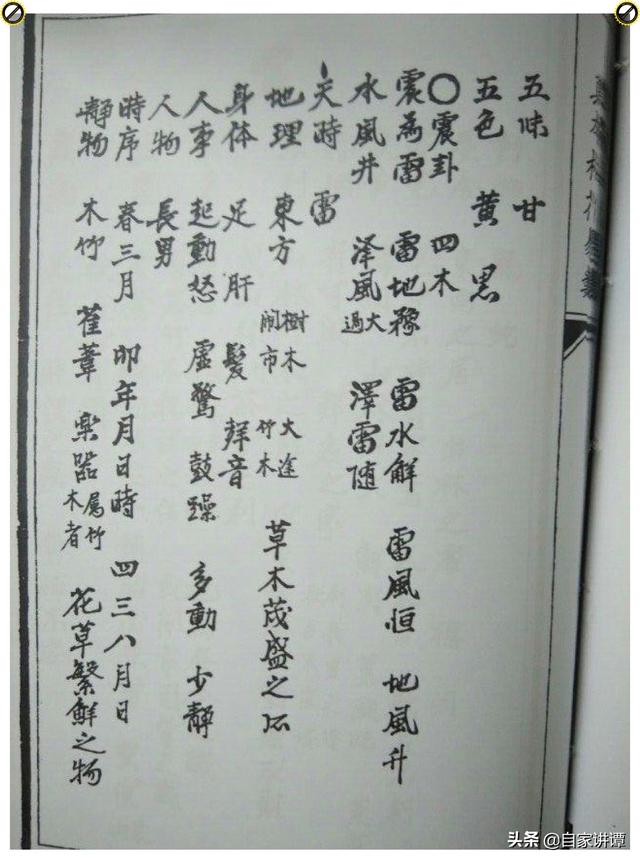 五味 甘
五色 黄 黑
○震卦 四木
震為雷 雷地豫 雷水解 雷風恒 地風升
水風井 泽風大過 澤雷随
天時 雷
地理 東方 樹木 闹市 大途 竹木 草木茂盛之所
身体 足 肝 髮 聲音
人事 起動怒 虚驚 鼓躁 多動 少静
人物 長男
時序 春三月 卯年月日時 四三八月日
靜物 木竹 萑葦 樂器属竹木者 花草繁鮮之物
头条 @自家讲谭